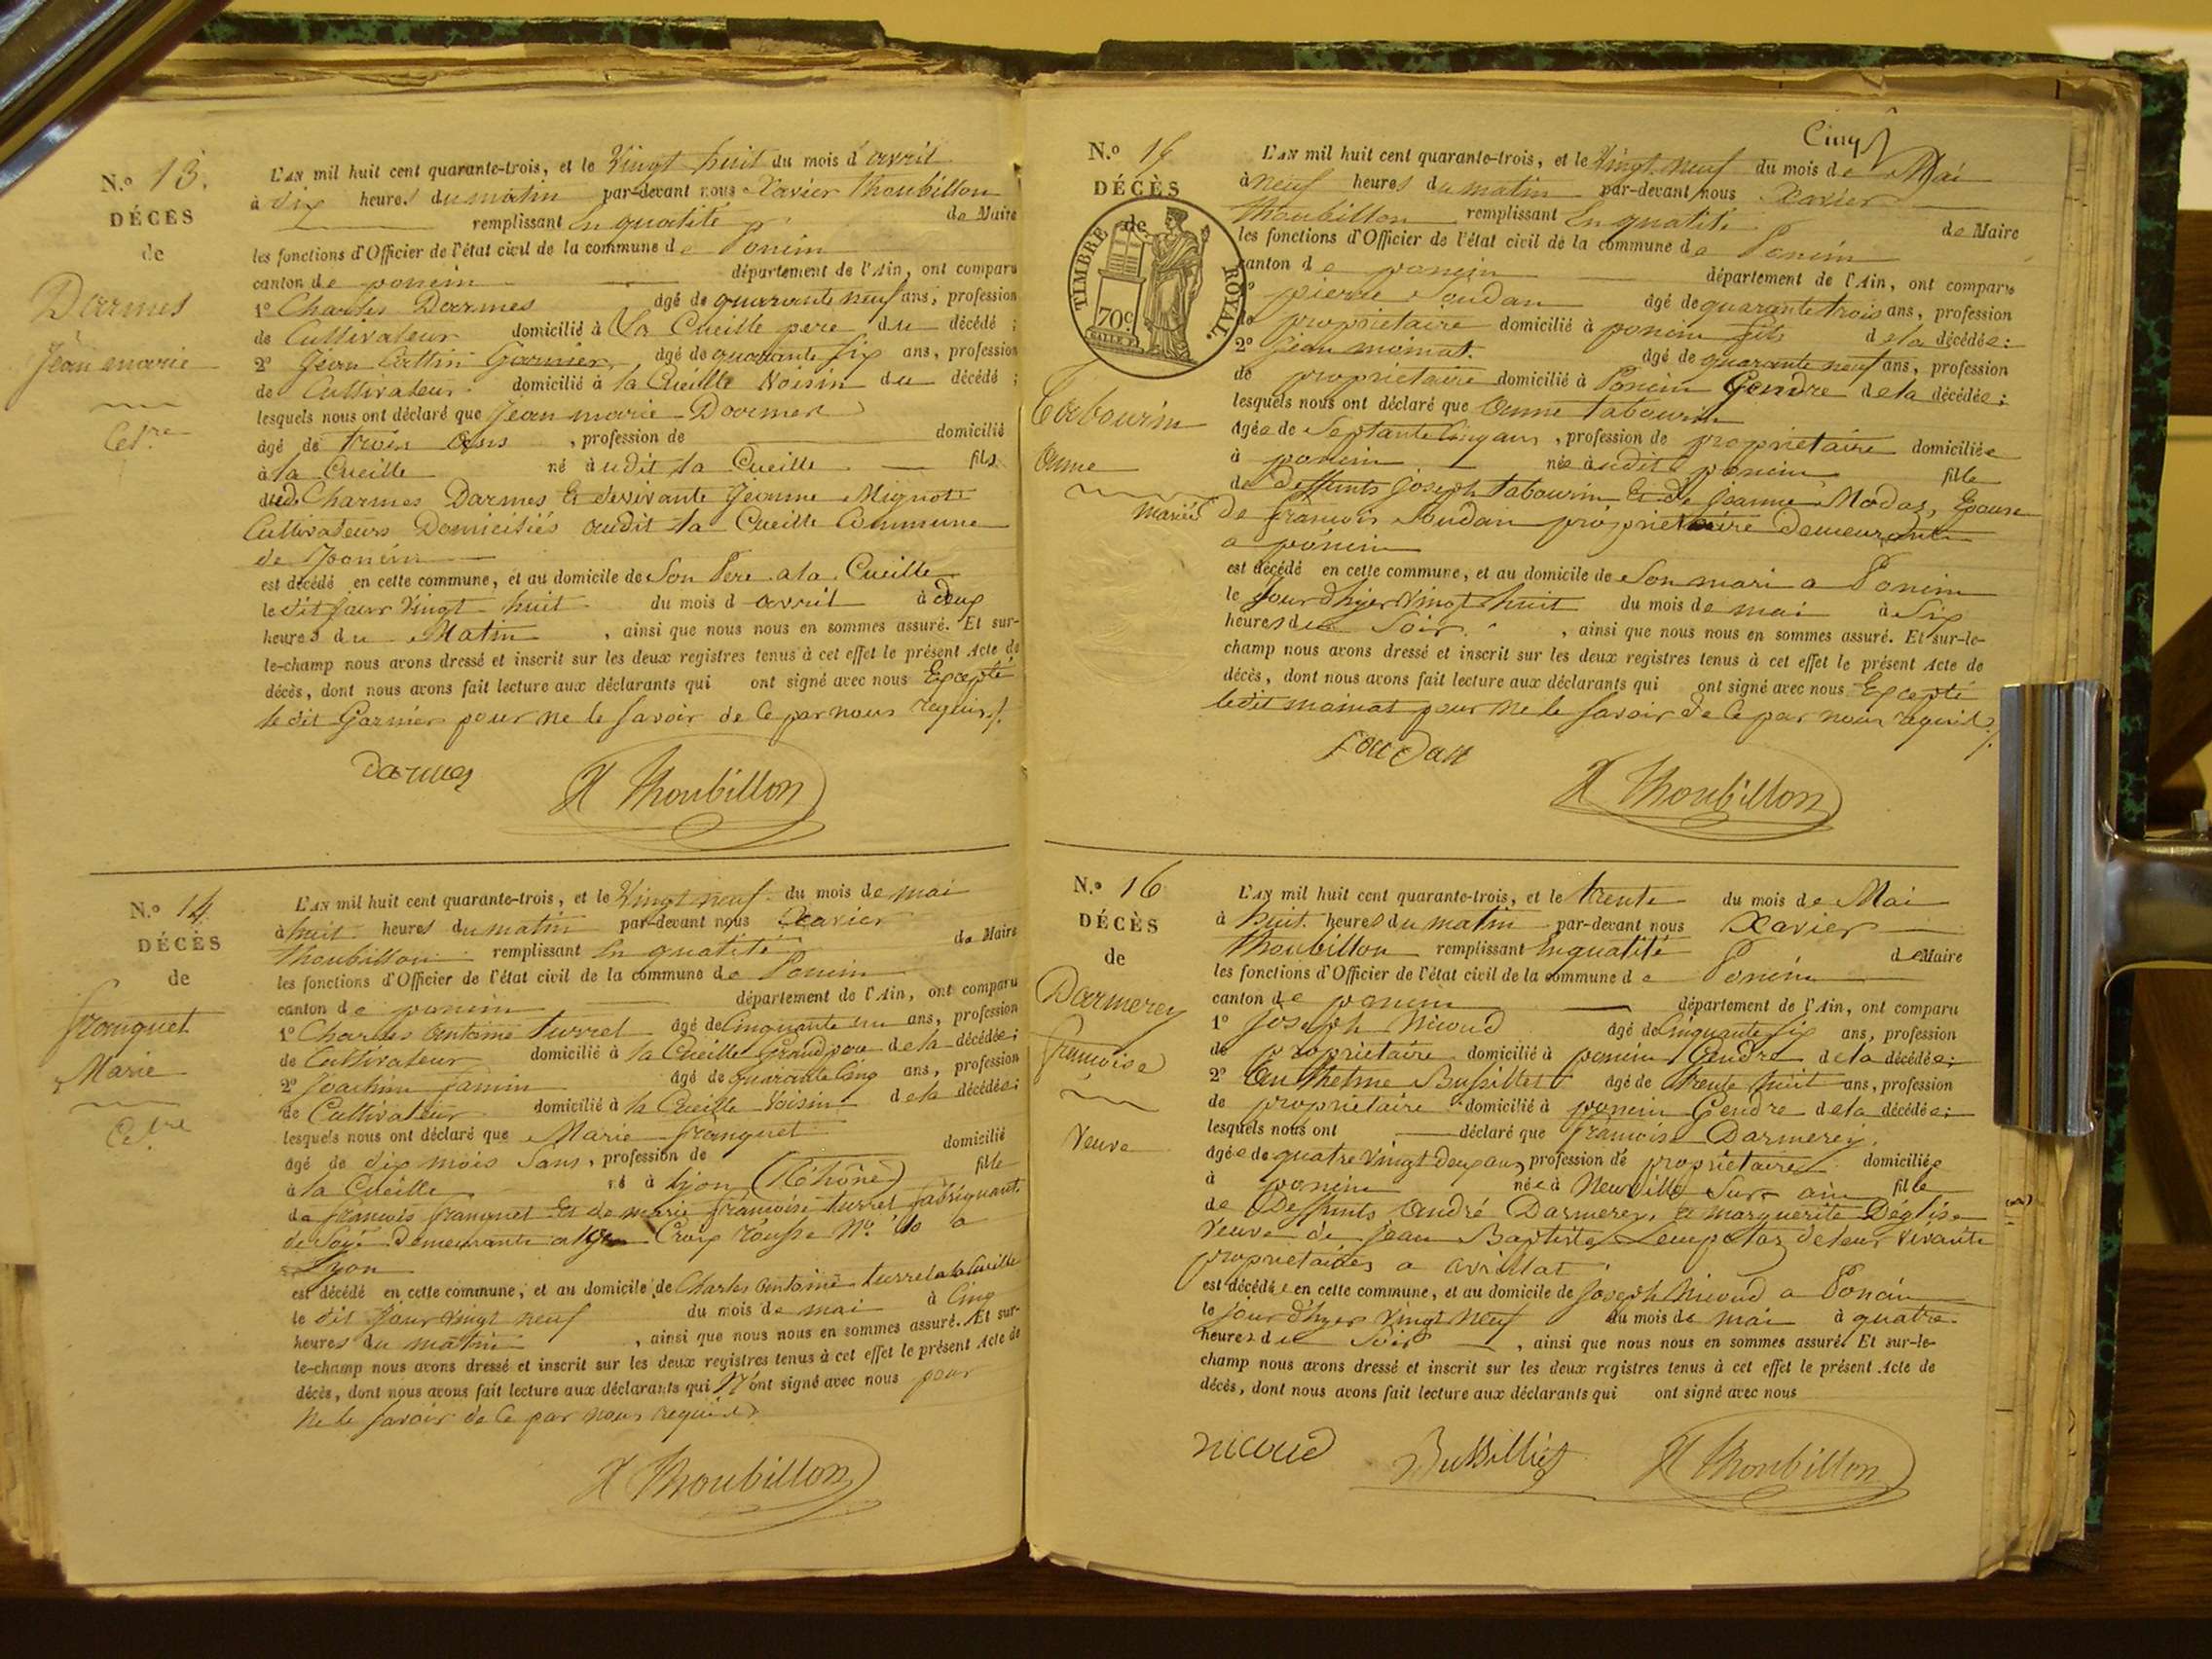 N.º 13.
DÉCÈS
de
Darmes
Jean marie
Cel.re
L'AN mil huit cent quarante-trois, et le Vingt huit du mois d'avril
à dix heures du matin par-devant nous Xavier Thoubillon
remplissant en qualité de Maire
les fonctions d'Officier de l'état civil de la commune de Poncin
canton de poncin département de l'Ain, ont comparu
1º Charles Darmes âgé de quarante neuf ans, profession
de Cultivateur domicilié à La Cueille pere du décédé ;
2º Jean Cattin Garnier, âgé de quarante six ans, profession
de Cultivateur domicilié à la Cueille Voisin du décédé ;
lesquels nous ont déclaré que Jean marie Darmes
âgé de trois ans , profession de domicilié
à la Cueille né audit la Cueille fils
dud. Charmes Darmes Et devivante Jeanne Mignot
Cultivateurs Domiciliés audit la Cueille Commune
de Poncin
est décédé en cette commune, et au domicile de Son Pere a la Cueille
le dit jour Vingt huit du mois d avril à deux
heures du Matin , ainsi que nous nous en sommes assuré. Et sur-
le-champ nous avons dressé et inscrit sur les deux registres tenus à cet effet le présent Acte de
décès, dont nous avons fait lecture aux déclarants qui ont signé avec nous Excepté
le dit Garnier pour ne le savoir de Ce par nous requis ./.
Darmes
X Thoubillon
N.º 14.
DÉCÈS
de
franquet
Marie
Cel.re
L'AN mil huit cent quarante-trois, et le Vingt neuf du mois de mai
à huit heures du matin par-devant nous Xavier
Thoubillon remplissant en qualité de Maire
les fonctions d'Officier de l'état civil de la commune de Poncin
canton de poncin département de l'Ain, ont comparu
1º Charles antoine turrel âgé de Cinquante un ans, profession
de Cultivateur domicilié à la Cueille Grand pere de la décédée ;
2º Joachim Jamin âgé de quarante Cinq ans, profession
de Cultivateur domicilié à la Cueille Voisin de la décédée ;
lesquels nous ont déclaré que Marie franquet
âgé de dix mois Sans, profession de domicilié
à la Cueille né à Lyon (Rhône) fille
de francois franquet Et de marie francoise turrel fabriquant
de Soye Demeurants a Croix Rousse Nº a
Lyon
est décédé en cette commune, et au domicile de Charles antoine turrel a la Cueille
le dit jour Vingt neuf du mois de mai à Cinq
heures du matin , ainsi que nous nous en sommes assuré. Et sur-
le-champ nous avons dressé et inscrit sur les deux registres tenus à cet effet le présent Acte de
décès, dont nous avons fait lecture aux déclarants qui N'ont signé avec nous pour
Ne le savoir de Ce par nous requis
X Thoubillon
Cinq
N.º 15
DÉCÈS
de
TIMBRE ROYAL.
70c
Tabourin
Anne
mariée
L'AN mil huit cent quarante-trois, et le Vingt neuf du mois de Mai
à neuf heures du matin par-devant nous Xavier
Thoubillon remplissant En qualité de Maire
les fonctions d'Officier de l'état civil de la commune de Poncin
canton de poncin département de l'Ain, ont comparu
1º pierre Soudan âgé de quarante trois ans, profession
de proprietaire domicilié à poncin fils de la décédée ;
2º Jean moinat. âgé de quarante neuf ans, profession
de proprietaire domicilié à Poncin Gendre de la décédée ;
lesquels nous ont déclaré que Anne tabourin
âgée de Septante Cinq ans , profession de proprietaire domiciliée
à poncin née audit poncin fille
de Deffunts Joseph tabourin Et de Jeanne Modas, Epouse
De francois Soudan proprietaire Demeurant
a poncin
est décédé en cette commune, et au domicile de Son mari a Poncin
le Jour d'hyer Vingt huit du mois de mai à Six
heures du Soir , ainsi que nous nous en sommes assuré. Et sur-le-
champ nous avons dressé et inscrit sur les deux registres tenus à cet effet le présent Acte de
décès, dont nous avons fait lecture aux déclarants qui ont signé avec nous Excepté
ledit moinat pour Ne le savoir de Ce par nous requis ./.
Soudan
X Thoubillon
N.º 16
DÉCÈS
de
Darmerey
francoise
Veuve
L'AN mil huit cent quarante-trois, et le trente du mois de Mai
à huit heures du matin par-devant nous Xavier
Thoubillon remplissant En qualité de Maire
les fonctions d'Officier de l'état civil de la commune de Poncin
canton de poncin département de l'Ain, ont comparu
1º Joseph Nicoud âgé de Cinquante Six ans, profession
de proprietaire domicilié à poncin Gendre de la décédée ;
2º Anthelme Bussillet âgé de trente huit ans, profession
de proprietaire domicilié à poncin Gendre de la décédée ;
lesquels nous ont déclaré que francoise Darmerey.
âgée de quatre Vingt Deux ans profession de proprietaire domiciliée
à poncin née à Neuville Sur ain fille
de Deffunts André Darmerey, et marguerite Déglise
Veuve de Jean Baptiste de leur Vivante
proprietaires a
est décédée en cette commune, et au domicile de Joseph Nicoud a Poncin
le jour d'hyer Vingt Neuf du mois de mai à quatre
heures du Soir , ainsi que nous nous en sommes assuré. Et sur-le-
champ nous avons dressé et inscrit sur les deux registres tenus à cet effet le présent Acte de
décès, dont nous avons fait lecture aux déclarants qui ont signé avec nous
nicoud
Bussillet
X Thoubillon